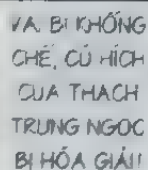 VÀ BỊ KHỐNG
CHẾ, CÚ HÍCH
CỦA THẠCH
TRUNG NGỌC
BỊ HÓA GIẢI!